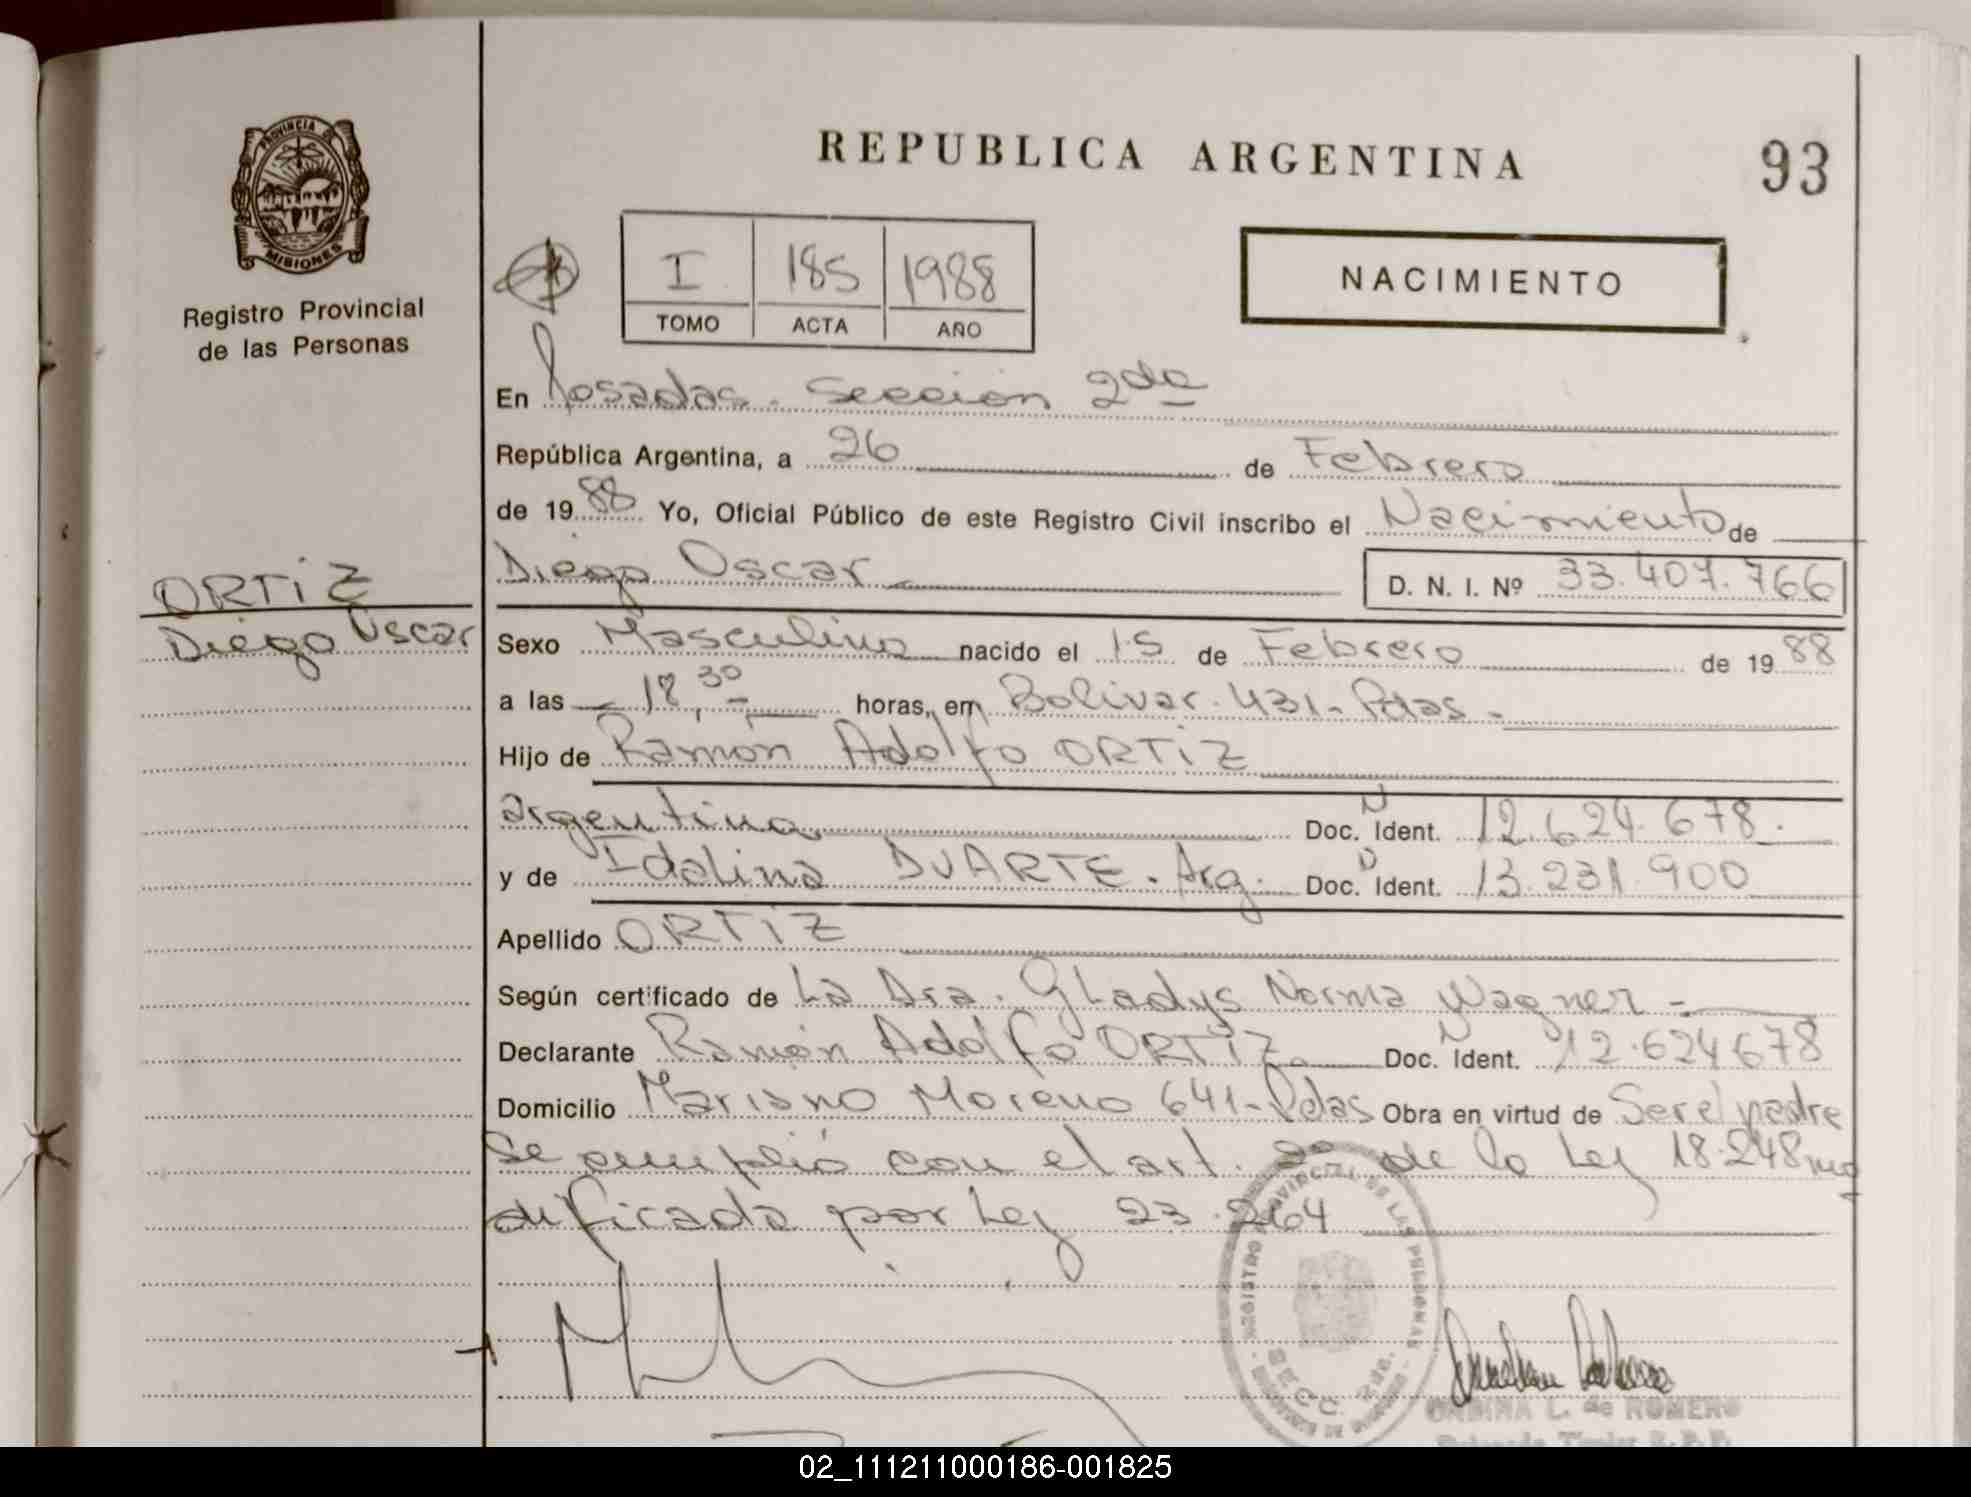 PROVINCIA DE
MISIONES
Registro Provincial
de las Personas
ORTIZ
Diego Oscar
REPUBLICA ARGENTINA
93
I 185 1988
TOMO ACTA AÑO
NACIMIENTO
En Posadas. Sección 2da
República Argentina, a 26 de Febrero
de 1988 Yo, Oficial Público de este Registro Civil inscribo el Nacimiento de
Diego Oscar D. N. I. Nº 33.407.766
Sexo Masculino nacido el 15 de Febrero de 1988
a las 18,30 horas, en Bolivar 431- Pdas.
Hijo de Ramón Adolfo ORTIZ
argentina Doc. N Ident. 12.624.678.
y de Idalina DUARTE. Arg. Doc. Ident. 13.231.900
Apellido ORTIZ
Según certificado de La Dra. Gladys Norma Wagner -
Declarante Ramón Adolfo ORTIZ. Doc. N Ident. 12.624678
Domicilio Mariano Moreno 641- Pdas Obra en virtud de Ser el padre
Se cumplió con el art. de la Ley 18.248 mo
dificada por Ley 23.264
REGISTRO PROVINCIAL DE LAS PERSONAS
SECC. 2da.
L. de ROMERO
02_111211000186-001825